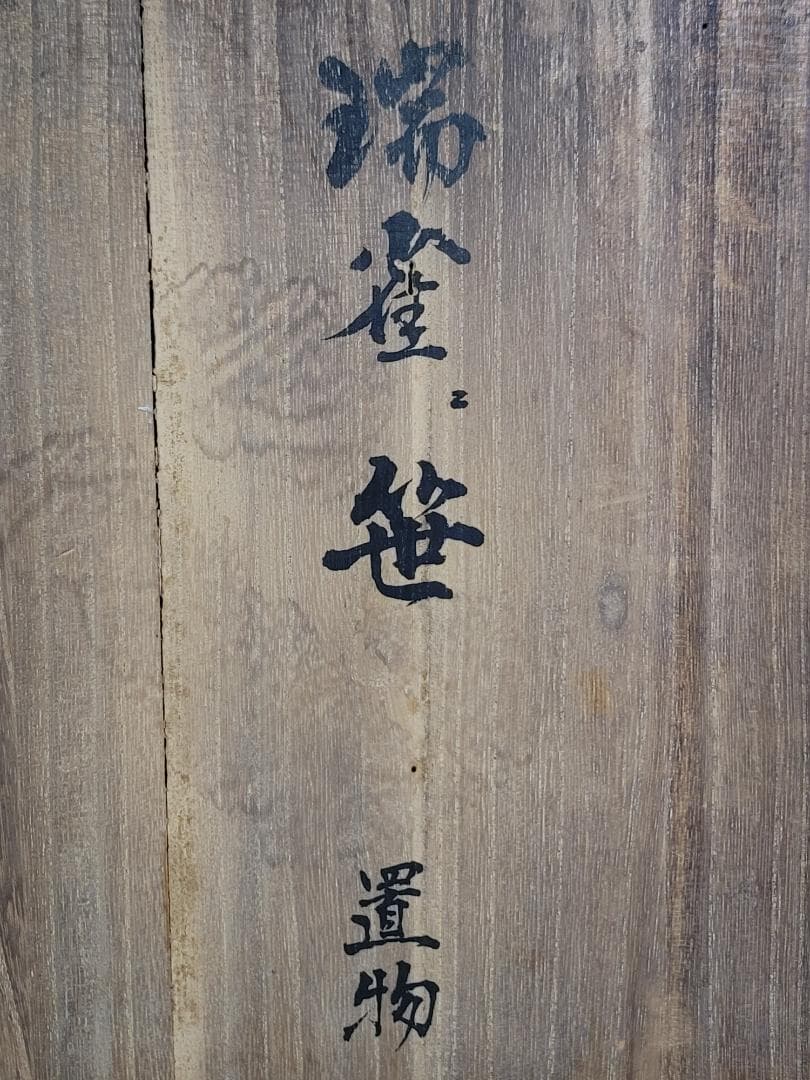 瑞雀ニ笹 置物